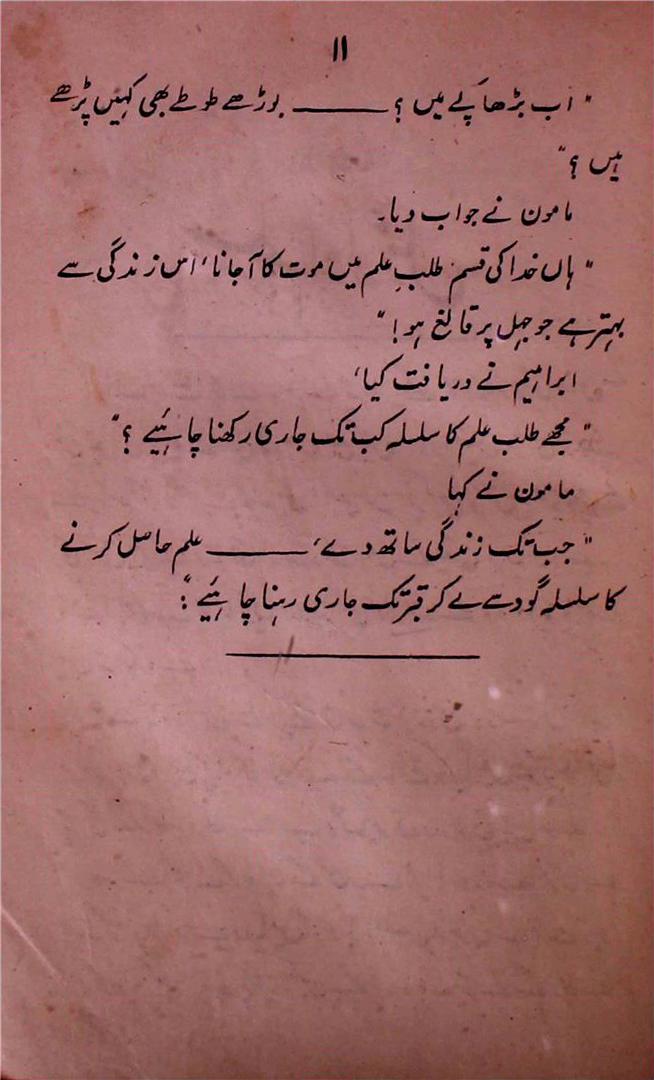 ۱۱
"اب بڑھاپے میں؟ ـــــــ بوڑھے طوطے بھی کہیں پڑھے
ہیں؟"
مامون نے جواب دیا۔
"ہاں خدا کی قسم طلبِ علم میں موت کا آجانا، اس زندگی سے
بہتر ہے جو جہل پر قانع ہو!"
ابراہیم نے دریافت کیا،
"مجھے طلب علم کا سلسلہ کب تک جاری رکھنا چاہئیے؟"
مامون نے کہا
"جب تک زندگی ساتھ دے، ـــــــ علم حاصل کرنے
کا سلسلہ گود سے لے کر قبر تک جاری رہنا چاہئیے"؛